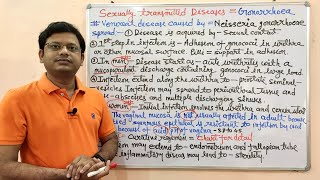 Sexually transmitted Diseases = Gonorrhoea
# Venereal disease caused by = Neisseria gonorrhoeae
spread - ① Disease is acquired by sexual contact.
② 1st step in infection is - Adhesion of gonococci to urethra
or other mucosal surface. Pili = support in adhesion
③ In men - Disease start as - acute urethritis with a
mucopurulent discharge containing gonococci in large
④ Infection extend along the urethra to prostate, seminal
vesicles. Infection may spread to periurethral tissue and
abscesses and multiple discharging sinuses.
women - Initial infection involves the urethra and cervix
The vaginal mucosa is not usually affected in adults because
squamous epithelium is resistant to infection by
because of acidic pH of vagina
may extend to endometrium and fallopian tube
inflammatory disease may lead to - sterility.